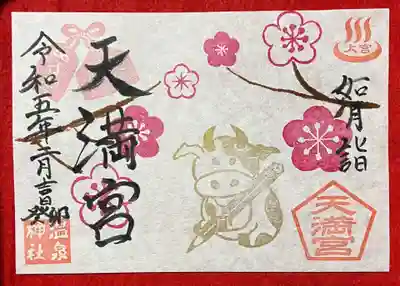 上宮
如月詣
天満宮
天満宮
令和五年二月吉日
癸卯
温泉
神社